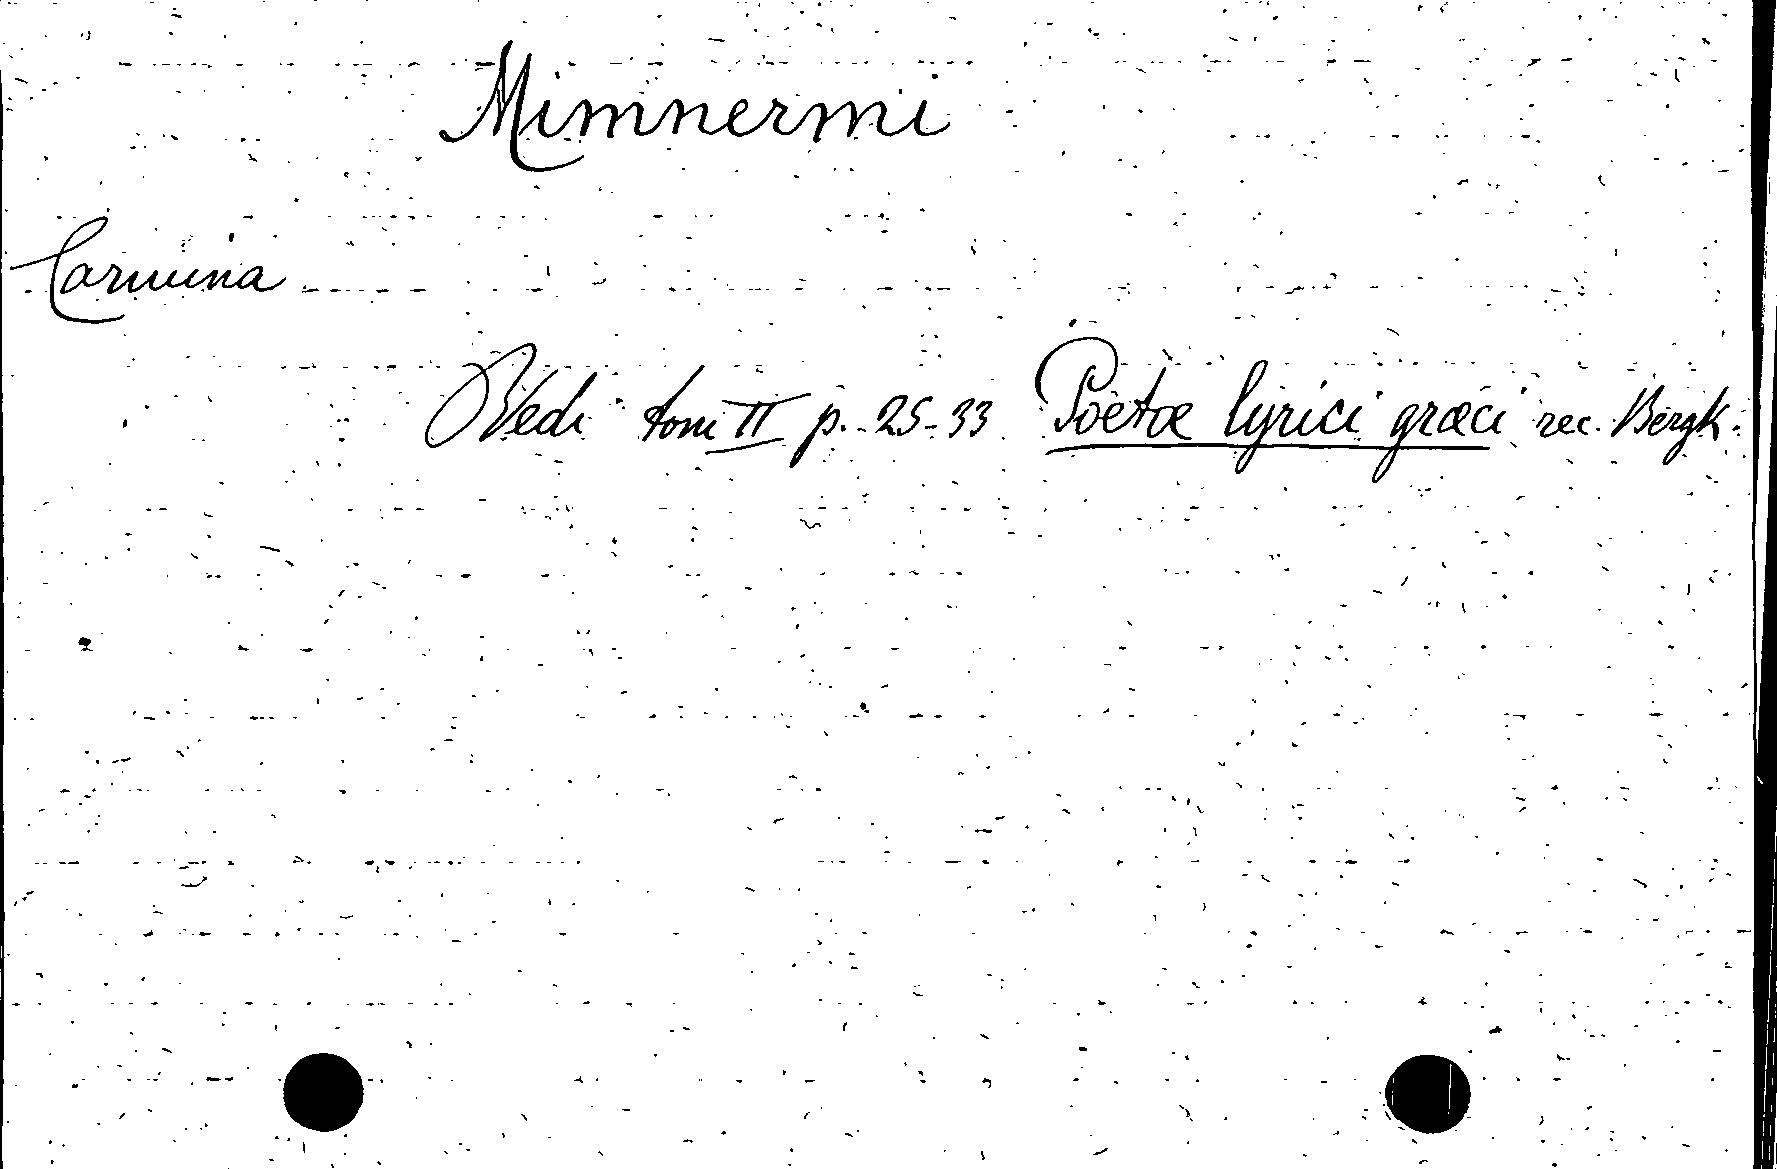 Mimnermi
Carmina
Vedi tom II p. 25-33 Poetæ lyrici græci rec. Bergk.